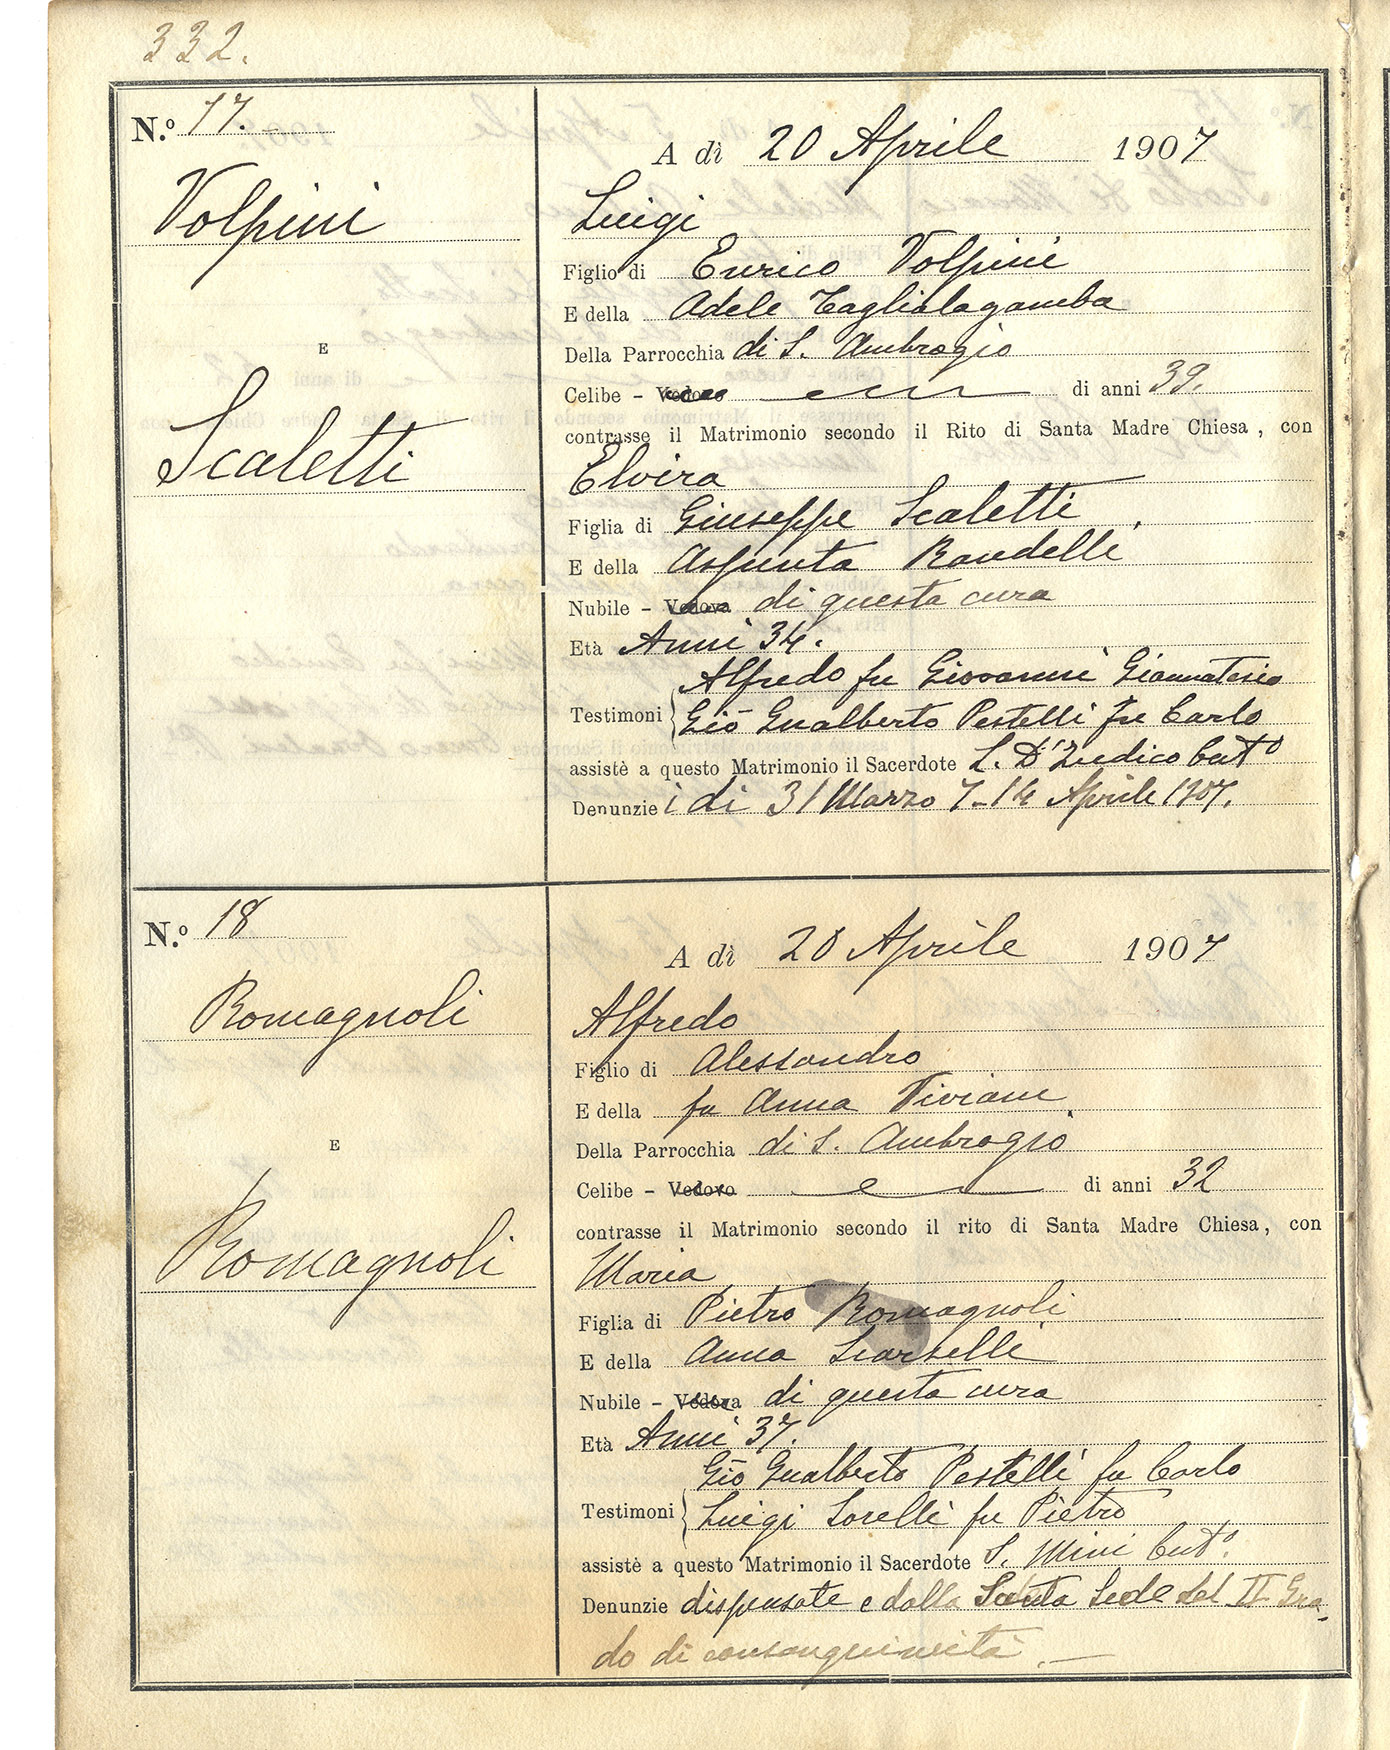 332.
N.º 17.
A dì 20 Aprile 1907
Volpini
Luigi
Figlio di Enrico Volpini
E della Adele Taglialagamba
Della Parrocchia di S. Ambrogio
E
Celibe - Vedovo di anni 39.
contrasse il Matrimonio secondo il Rito di Santa Madre Chiesa, con
Scaletti
Elvira
Figlia di Giuseppe Scaletti
E della Assunta Randelli
Nubile - Vedova di questa cura
Età Anni 34.
Alfredo fu Giovanni
Testimoni Gio Gualberto Pestelli fu Carlo
assistè a questo Matrimonio il Sacerdote L. Curº
Denunzie i dì 31 Marzo 7-14 Aprile 1907.
N.º 18
A dì 20 Aprile 1907
Romagnoli
Alfredo
Figlio di Alessandro
E della fu Anna Viviani
Della Parrocchia di S. Ambrogio
E
Celibe - Vedovo di anni 32
contrasse il Matrimonio secondo il rito di Santa Madre Chiesa, con
Romagnoli
Maria
Figlia di Pietro Romagnoli
E della Anna Scarselli
Nubile - Vedova di questa cura
Età Anni 37.
Gio Gualberto Pestelli fu Carlo
Testimoni Luigi Sorelli fu Pietro
assistè a questo Matrimonio il Sacerdote S. Mini Curº.
Denunzie dispensate e dalla Santa Sede del II Gra-
do di consanguineità.